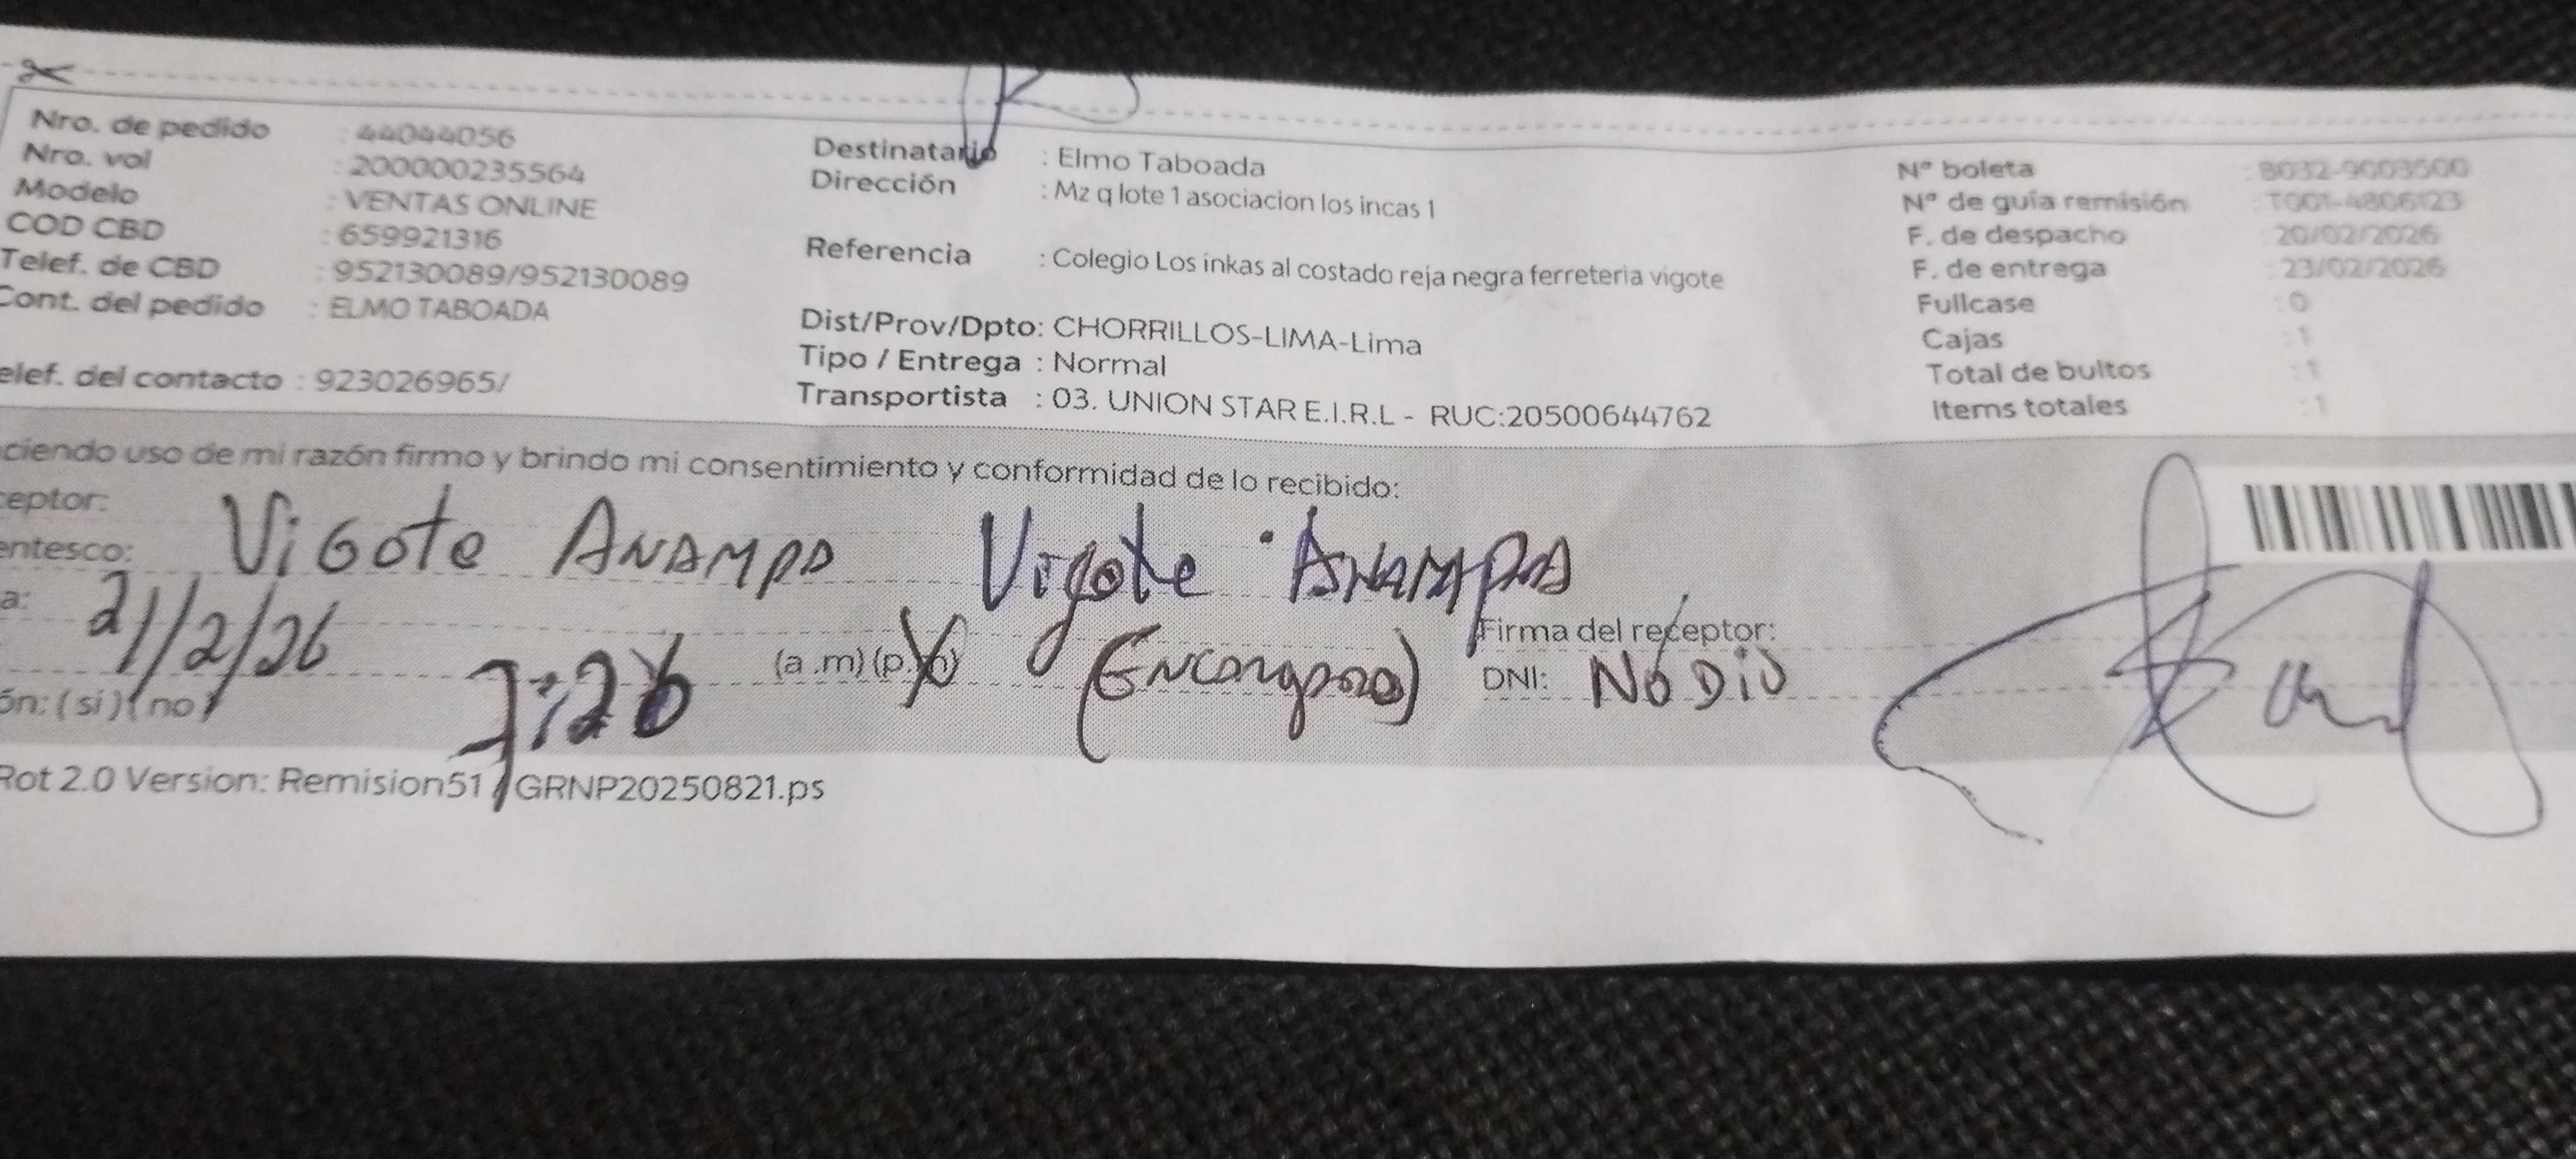 Nro. de pedido : 44044056
Nro. vol : 200000235564
Modelo : VENTAS ONLINE
COD CBD : 659921316
Telef. de CBD : 952130089/952130089
Cont. del pedido : ELMO TABOADA
elef. del contacto : 923026965/
Destinatario : Elmo Taboada
Dirección : Mz q lote 1 asociacion los incas 1
Referencia : Colegio Los inkas al costado reja negra ferreteria vigote
Dist/Prov/Dpto: CHORRILLOS-LIMA-Lima
Tipo / Entrega : Normal
Transportista : 03. UNION STAR E.I.R.L - RUC:20500644762
Nº boleta : B032-9003500
Nº de guía remisión : T001-4806123
F. de despacho : 20/02/2026
F. de entrega : 23/02/2026
Fullcase : 0
Cajas : 1
Total de bultos : 1
Items totales : 1
ciendo uso de mi razón firmo y brindo mi consentimiento y conformidad de lo recibido:
ceptor:
entesco: Vigote ANAMPA Vigote ANAMPA
a: 21/2/26
7:26 (a .m) (p.m) (Encargado)
Firma del receptor:
DNI: NO DIO
ón: ( si ) ( no )
Rot 2.0 Version: Remision51 / GRNP20250821.ps